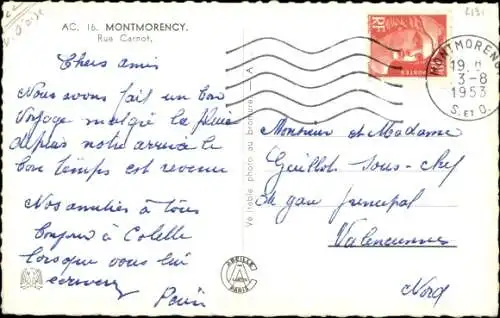 AC. 16. MONTMORENCY.
Rue Carnot.
Chers amis
Nous avons fait un bon
voyage malgré la pluie
depuis notre arrivée le
bon temps est revenu
Nos amitiés à tous
bonjour à Colette
lorsque vous lui
écrivez
Véritable photo au bromure. - A
ABEILLE
PARIS
RF
POSTES
MONTMORENCY
19 H
3-8
1953
S. ET O.
Monsieur et Madame
Guillot Sous-chef
de gare principal
Valenciennes
Nord